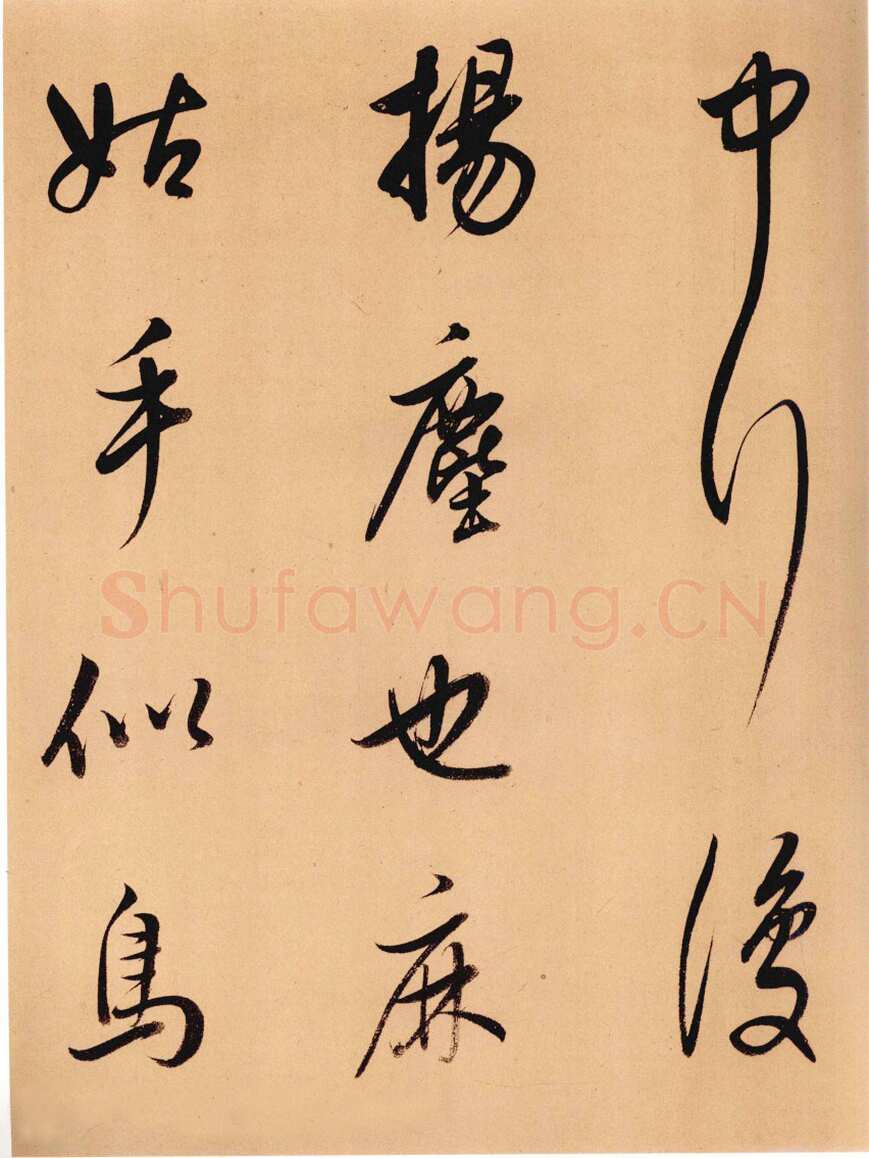 中行復
揚塵也麻
姑手似鳥
Shufawang.CN